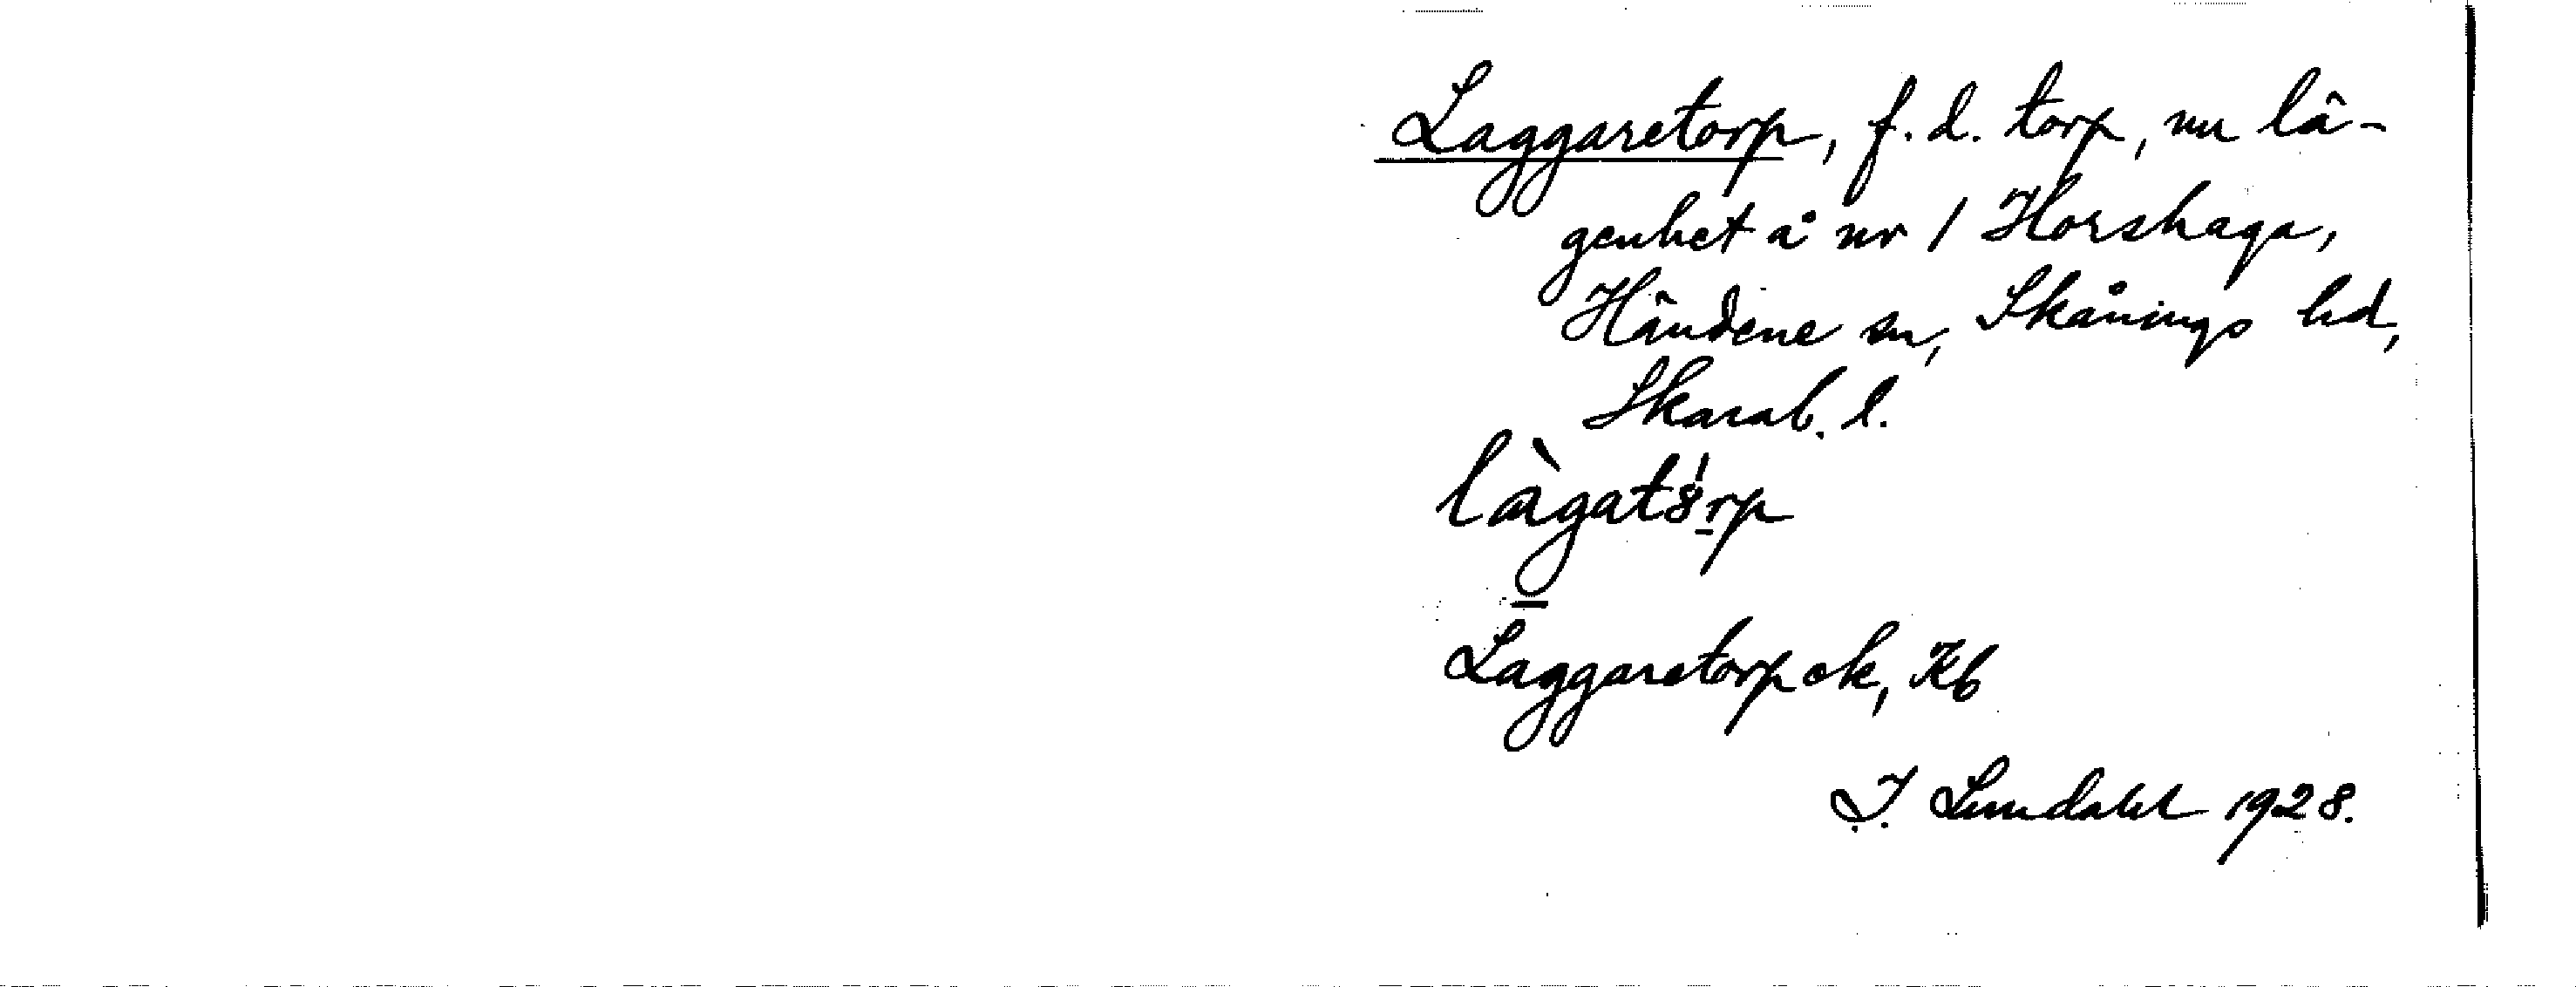 Laggaretorp, f. d. torp, nu lä-
genhet å nr 1 Horshaga,
Händene sn, Skånings hd,
Skarab. l.
làgat8̍rp
Laggaretorp ek, Kb
I. Lundahl 1928.